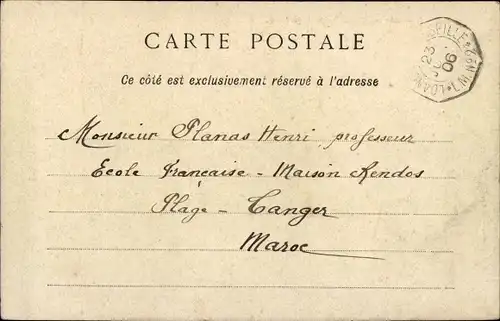 CARTE POSTALE
Ce côté est exclusivement réservé à l'adresse
Monsieur Planas Henri professeur
Ecole Française - Maison Kendos
Plage - Tanger
Maroc
23
06